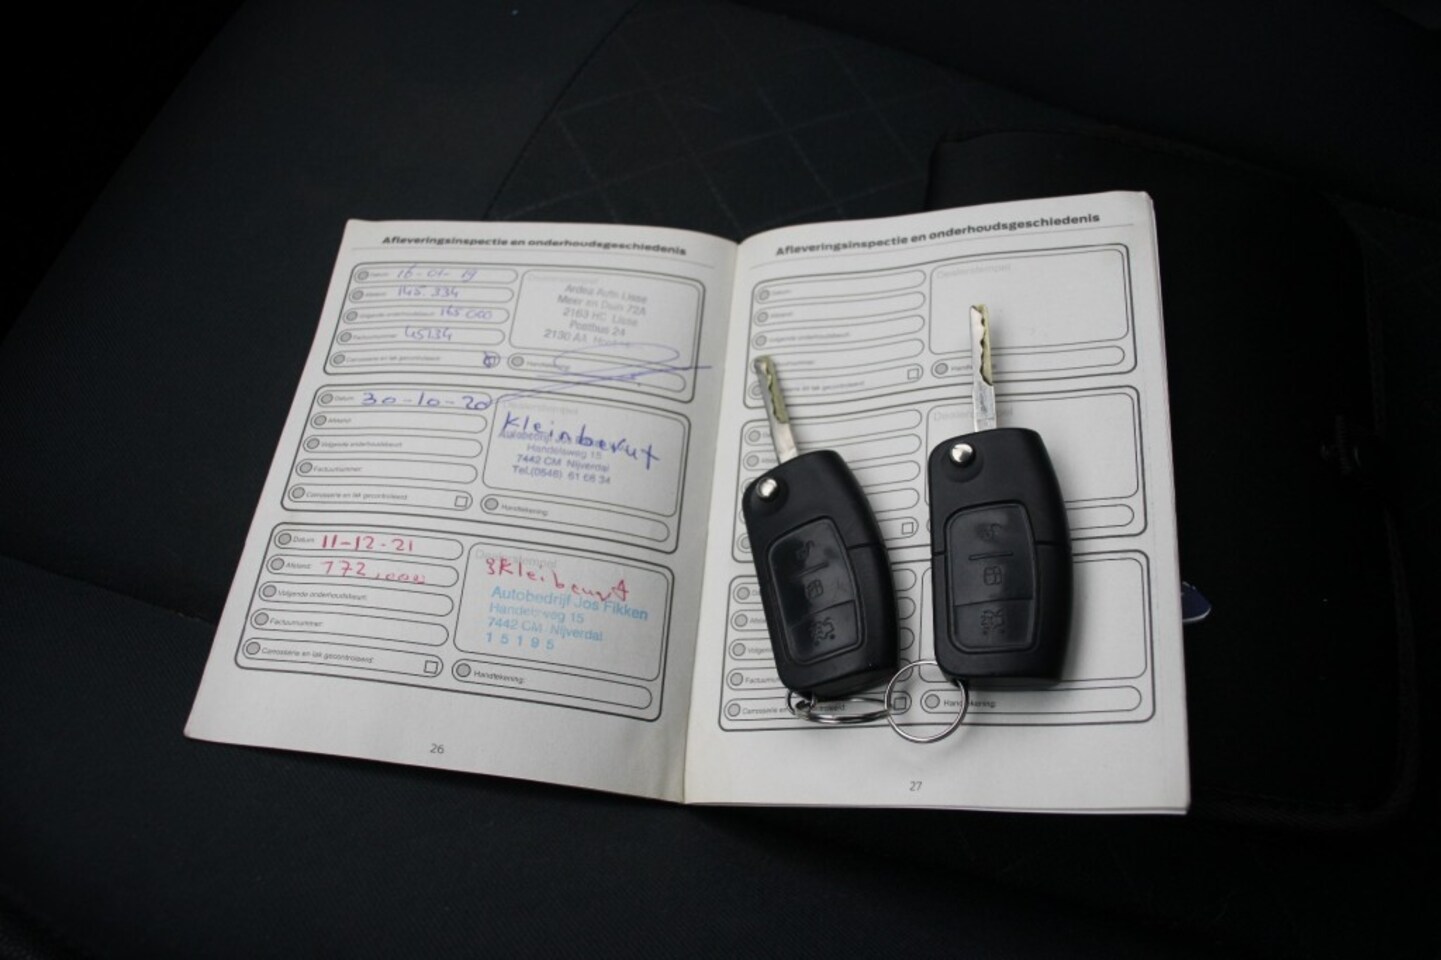 Afleveringsinspectie en onderhoudsgeschiedenis
Datum: 16-01-19
Afstand: 145 334
Volgende onderhoudsbeurt: 165 000
Factuurnummer: 45134
Carrosserie en lak gecontroleerd:
Ardea Auto Lisse
Meer en Duin 72A
2163 HC Lisse
Postbus 24
2130 AA
Handtekening:
Datum: 30-10-20
Afstand:
Volgende onderhoudsbeurt:
Factuurnummer:
Carrosserie en lak gecontroleerd:
Dealerstempel
Kleinbeurt
Autobedrijf Jos
Handelsweg 15
7442 CM Nijverdal
Tel.(0548) 61 66 34
Handtekening:
Datum: 11-12-21
Afstand: 172.000
Volgende onderhoudsbeurt:
Factuurnummer:
Carrosserie en lak gecontroleerd:
Dealerstempel
Autobedrijf Jos Fikken
Handelsweg 15
7442 CM Nijverdal
15195
Handtekening:
26
Afleveringsinspectie en onderhoudsgeschiedenis
Datum:
Afstand:
Volgende onderhoudsbeurt:
Dealerstempel
27